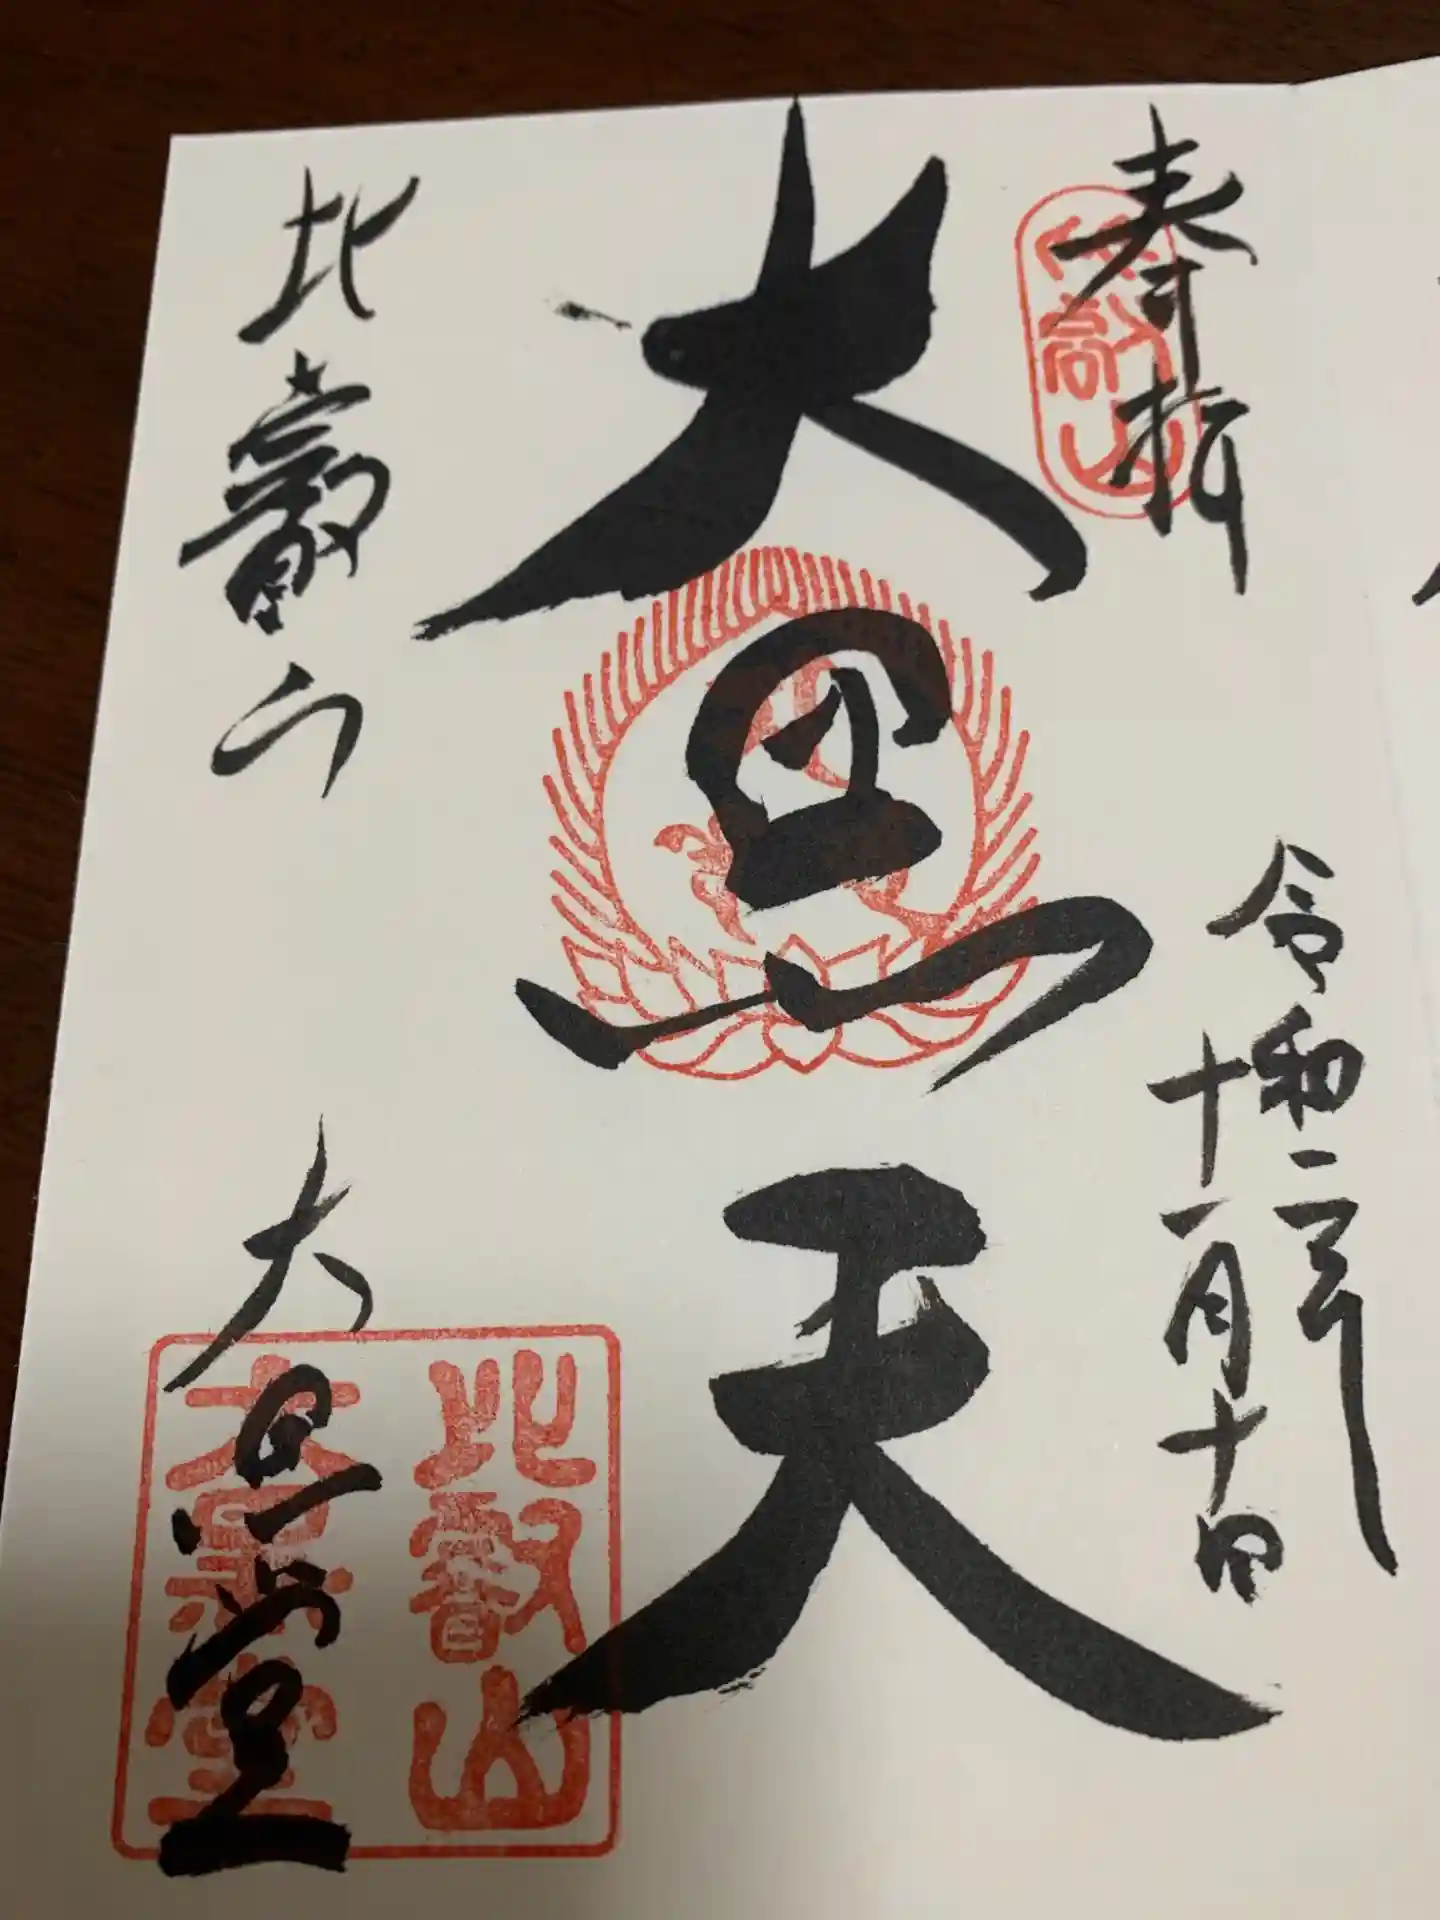 奉拝
令和二年
十一月十日
大黒天
比叡山
大黒堂
比叡山
比叡山
大黒堂